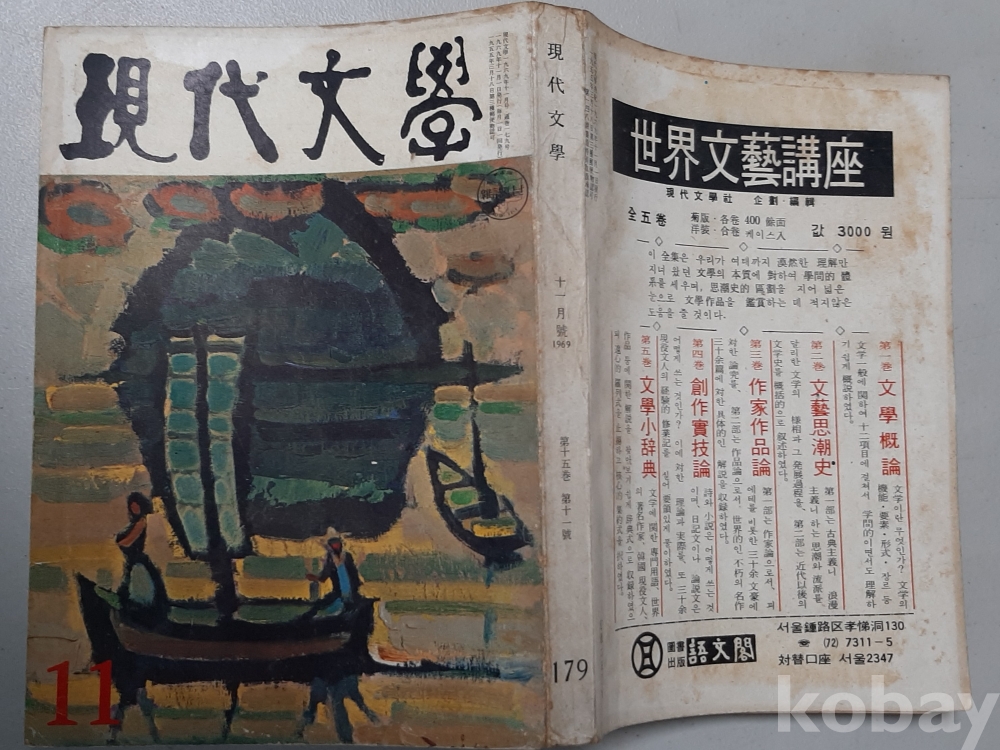 現代文學
現代文學 一九六九年十一月号 通巻一七九号
11
現代文學
十一月號
1969
第十五巻 第十一號
179
世界文藝講座
現代文學社 企劃·編輯
全五巻
菊版·各巻 400 餘面
洋裝·合巻 케이스入
값 3000 원
이 全集은 우리가 여태까지 漠然한 理解만
지녀 왔던 文學의 本質에 對하여 學問的 體
系를 세우며, 思潮史的 區劃을 지어 넓은
눈으로 文學作品을 鑑賞하는 데 적지않은
도움을 줄 것이다.
第一巻 文學概論
文学이란 무엇인가? 文学의
機能·要素·形式·장르 등
文学一般에 関하여 十二項目에 걸쳐서 学問的이면서도 理解하
기 쉽게 概説하였다.
第二巻 文藝思潮史
第一部는 古典主義니 浪漫
主義니 하는 思潮와 流派를,
달리한 文学의 様相과 그 発展過程을, 第二部는 近代以後의
文学史를 概括的으로 叙述하였다.
第三巻 作家作品論
第一部는 作家論으로서, 괴
에테를 비롯한 三十余文豪에
対한 論究를, 第二部는 作品論으로서, 世界的인 不朽의 名作
三十余篇에 対한 具体的인 解説을 収録하였다.
第四巻 創作實技論
詩와 小説은 어떻게 쓰는 것
이며, 日記文이나 論説文은
어떻게 쓰는 것인가? 이에 対한 理論과 実際를, 또 三十余
現役文人의 経験的 修業記을 실어 要領있게 풀이하였다.
第五巻 文學小辞典
文学에 関한 專門用語, 世界
의 著名作家, 韓國 現役文人,
作品 등에 関한 解説을 찾아보기 쉽게 辞典式으로 収録하였으
圖書出版 語文閣
서울鍾路区孝悌洞130
☎ (72) 7311-5
対替口座 서울2347
kobay